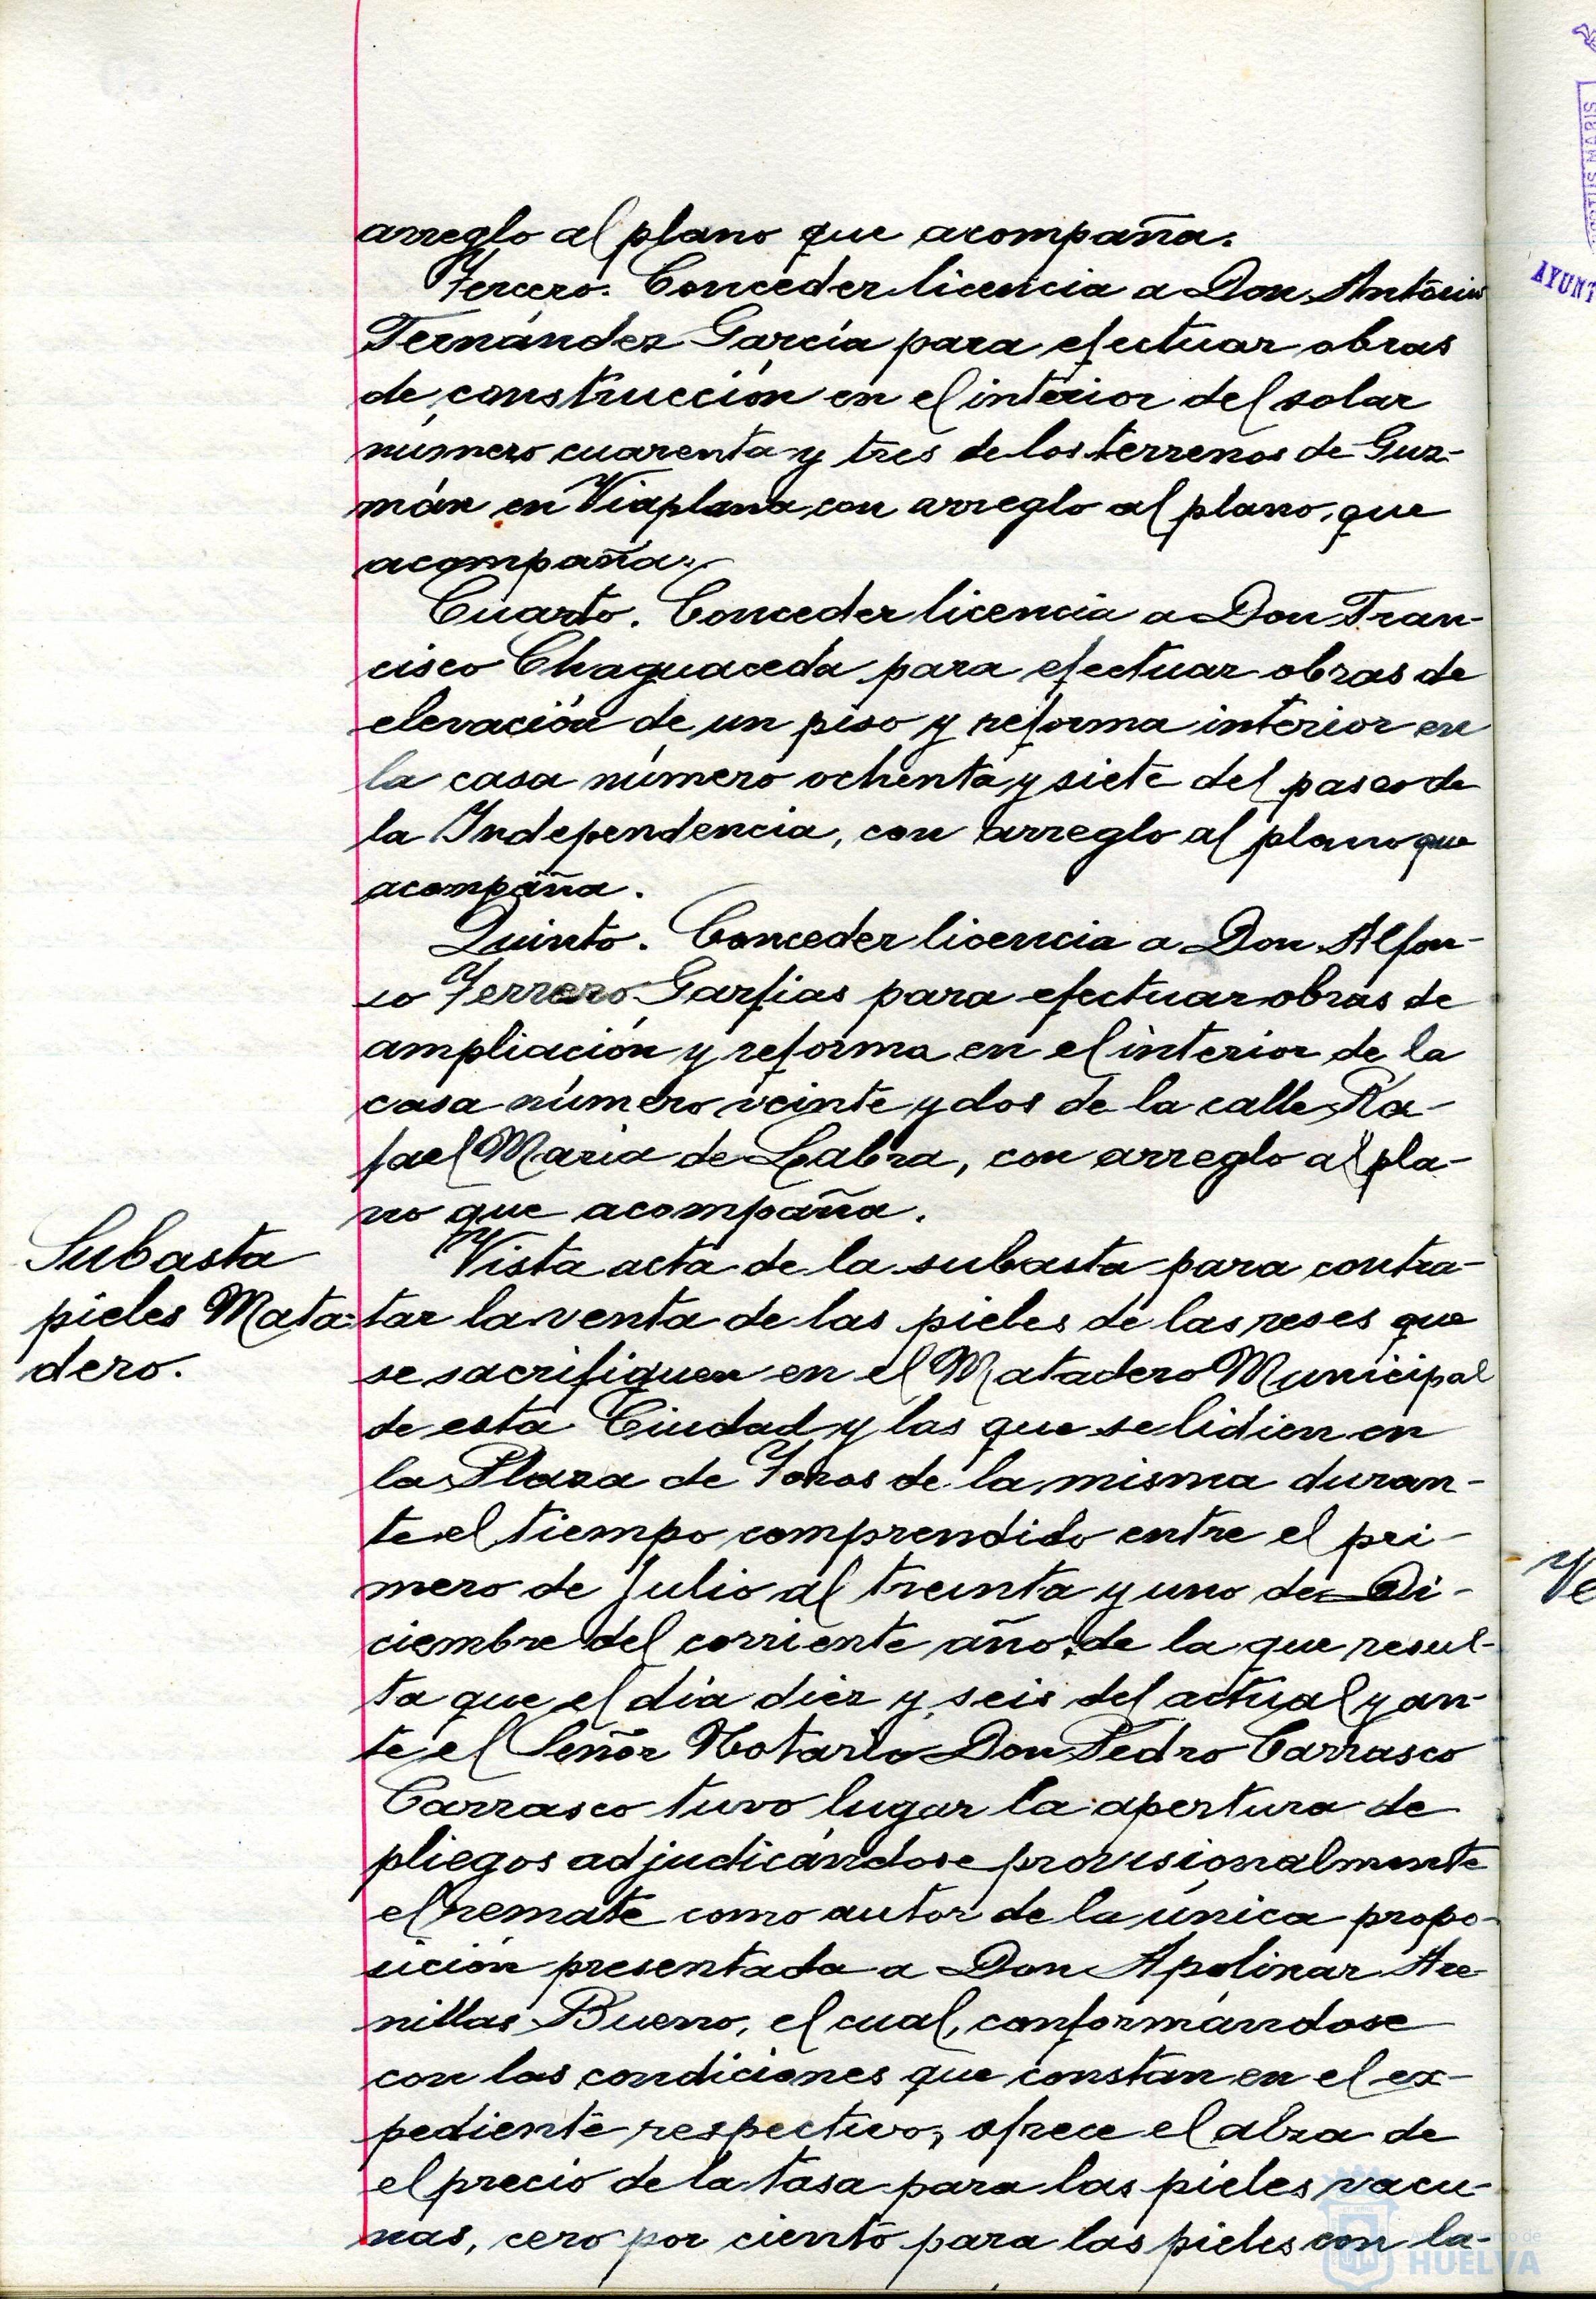 arreglo al plano que acompaña.
Tercero. Conceder licencia a Don Antonio
Fernández García para efectuar obras
de construcción en el interior del solar
número cuarenta y tres de los terrenos de Guz-
mán en Viaplana con arreglo al plano, que
acompaña.
Cuarto. Conceder licencia a Don Fran-
cisco Chaguaceda para efectuar obras de
elevación de un piso y reforma interior en
la casa número ochenta y siete del paseo de
la Independencia, con arreglo al plano que
acompaña.
Quinto. Conceder licencia a Don Alfon-
so Ferrero Garfias para efectuar obras de
ampliación y reforma en el interior de la
casa número veinte y dos de la calle Ra-
fael María de Labra, con arreglo al pla-
no que acompaña.
Subasta
pieles Mata-
dero.
Vista acta de la subasta para contra-
tar la venta de las pieles de las reses que
se sacrifiquen en el Matadero Municipal
de esta Ciudad y las que se lidien en
la Plaza de Toros de la misma duran-
te el tiempo comprendido entre el pri-
mero de Julio al treinta y uno de Di-
ciembre del corriente año, de la que resul-
ta que el día diez y seis del actual y an-
te el Señor Notario Don Pedro Carrasco
Carrasco tuvo lugar la apertura de
pliegos adjudicándose provisionalmente
el remate como autor de la única propo-
sición presentada a Don Apolinar Are-
nillas Bueno, el cual, conformándose
con las condiciones que constan en el ex-
pediente respectivo, ofrece el alza de
el precio de la tasa para las pieles vacu-
nas, cero por ciento para las pieles con la-
AYUNT
Ayuntamiento de
HUELVA